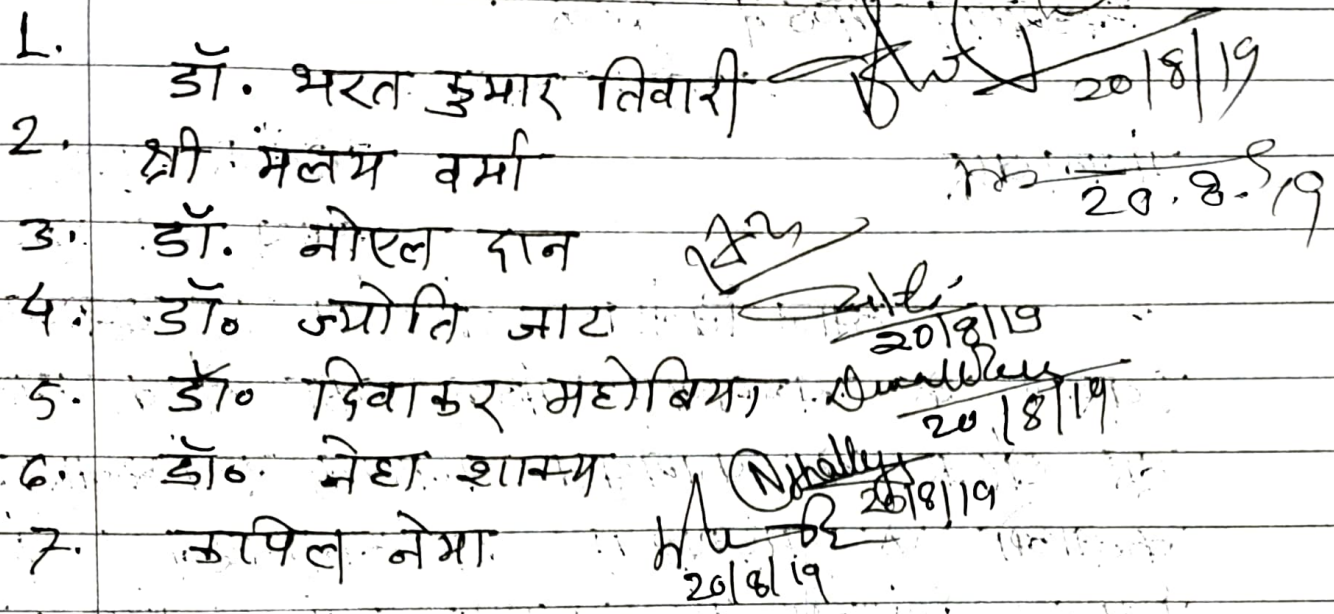 1.
डॉ. भरत कुमार तिवारी 20/8/19
2. श्री मलय वर्मा 20.8.19
3. डॉ. नोएल दान
4. डॉ० ज्योति जाट 20/8/19
5. डॉ० दिवाकर महोबिया 20/8/19
6. डॉ० नेहा शाक्य 20/8/19
7. कपिल नेमा 20/8/19